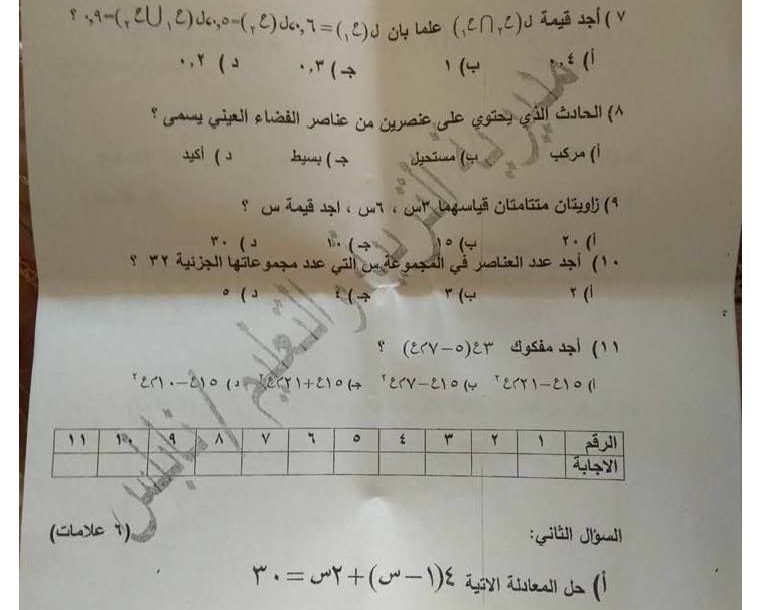 ٧) أجد قيمة ل(ع١∩ع٢) علما بان ل(ع١)=٠,٦، ل(ع٢)=٠,٥، ل(ع١∪ع٢)=٠,٩ ؟
أ) ٠,٤ ب) ١ جـ) ٠,٣ د) ٠,٢
٨) الحادث الذي يحتوي على عنصرين من عناصر الفضاء العيني يسمى ؟
أ) مركب ب) مستحيل جـ) بسيط د) أكيد
٩) زاويتان متتامتان قياسهما ٣س ، ٦س ، اجد قيمة س ؟
أ) ٢٠ ب) ١٥ جـ) ١٠ د) ٣٠
١٠) أجد عدد العناصر في المجموعة س التي عدد مجموعاتها الجزئية ٣٢ ؟
أ) ٢ ب) ٣ جـ) ٤ د) ٥
١١) أجد مفكوك ٣ع(٥-٧ع٢) ؟
أ) ١٥ع-٢١ع٢ ب) ١٥ع-٧ع٢ جـ) ١٥ع+٢١ع٢ د) ١٥ع-١٠ع٢
الرقم ١ ٢ ٣ ٤ ٥ ٦ ٧ ٨ ٩ ١٠ ١١
الاجابة
السؤال الثاني: (٦ علامات)
أ) حل المعادلة الاتية ٤(١-س)+٢س=٣٠
مديرية التربية والتعليم / نابلس